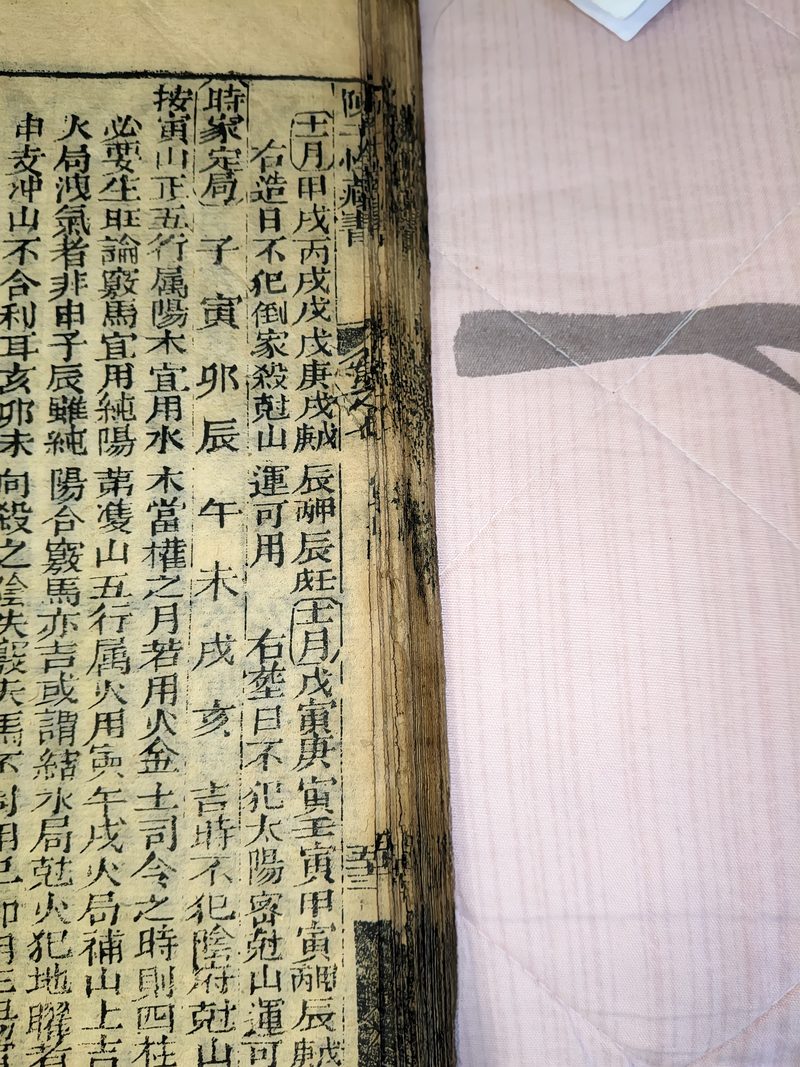 藏書
十二月甲戌丙戌戊戌庚戌 辰 辰 十二月戊寅庚寅壬寅甲寅 辰
右造日不犯倒家殺尅山運可用 右塟日不犯太陽密尅山運可
時家定局 子寅卯辰午未戌亥 吉時不犯陰府尅山
按寅山正五行属陽木宜用水木當權之月若用火金土司令之時則四柱
必要生旺論竅馬宜用純陽第隻山五行属火用寅午戌火局補山上吉
火局洩氣者非申子辰雖純陽合竅馬亦吉或謂結水局尅火犯地曜者
申支沖山不合利耳亥卯未向殺之陰失竅失馬不